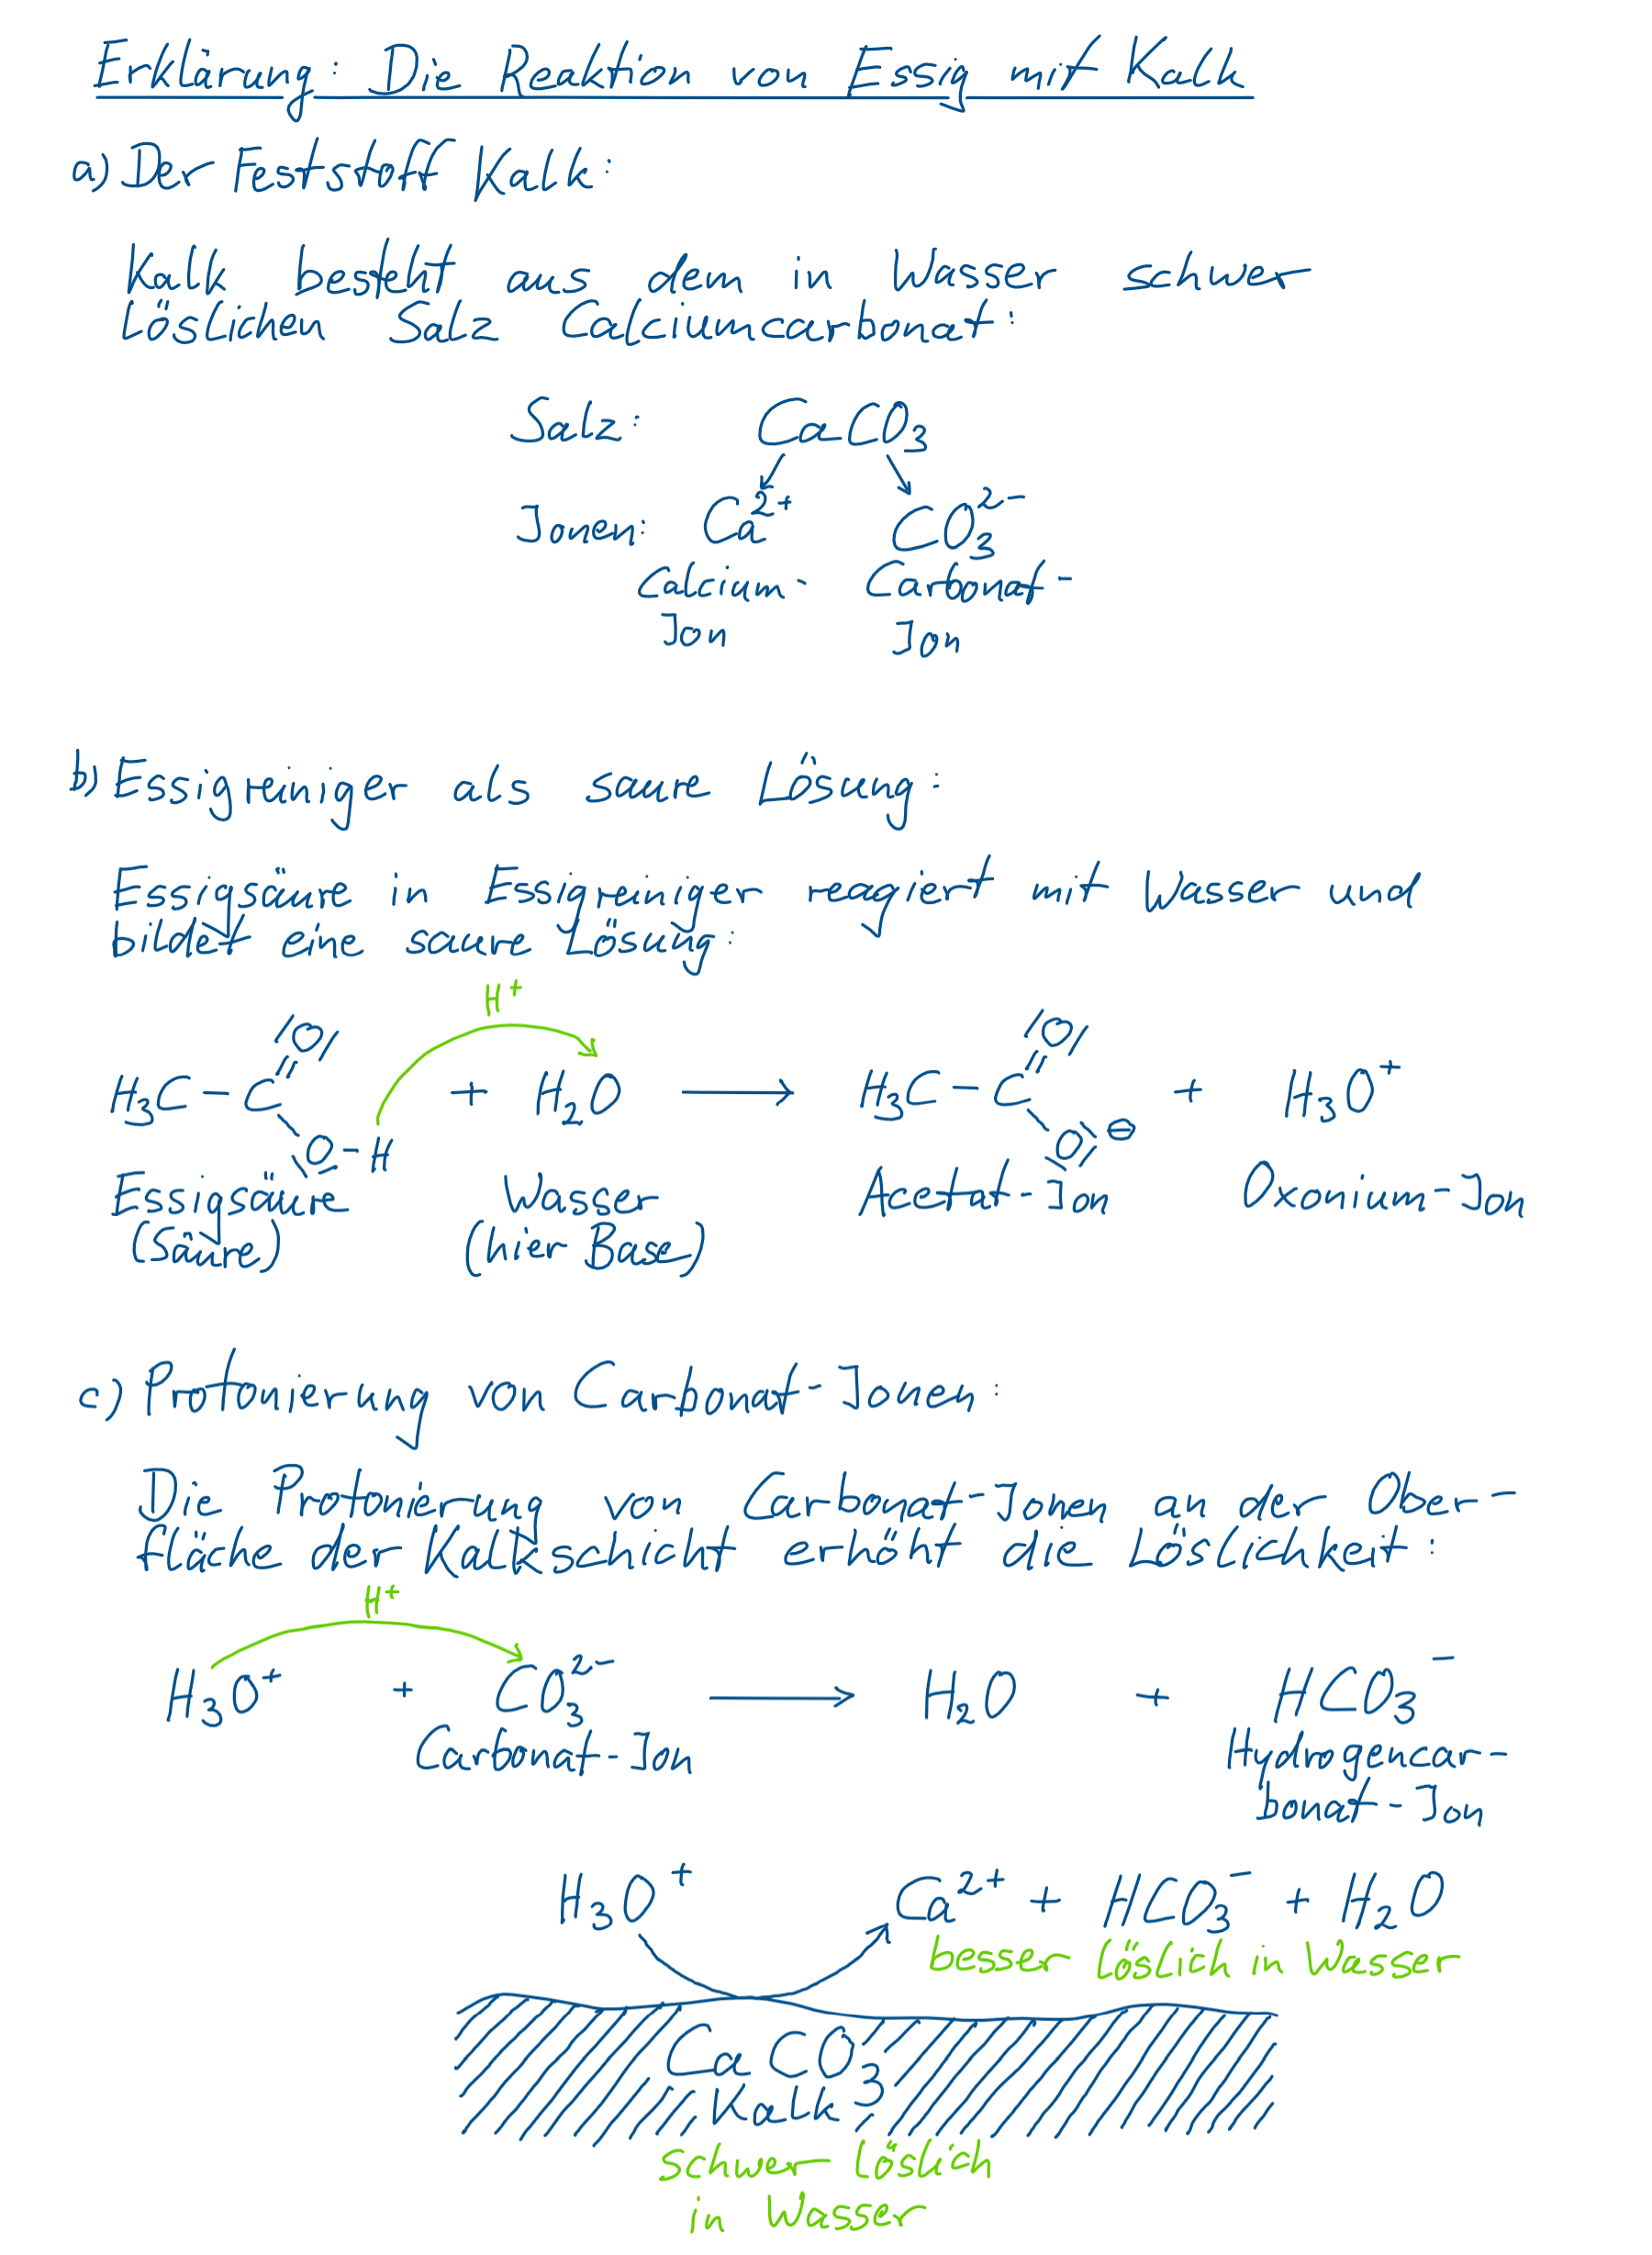 Erklärung: Die Reaktion von Essig mit Kalk
a) Der Feststoff Kalk:
Kalk besteht aus dem in Wasser schwer
löslichen Salz Calciumcarbonat:
Salz: CaCO₃
Jonen: Ca²⁺ CO₃²⁻
Calcium- Carbonat-
Jon Jon
b) Essigreiniger als saure Lösung:
Essigsäure in Essigreiniger reagiert mit Wasser und
bildet eine saure Lösung:
H⁺
H₃C-C O O-H + H₂O ⟶ H₃C-C O O⊖ + H₃O⁺
Essigsäure Wasser Acetat-Jon Oxonium-Jon
(Säure) (hier Base)
c) Protonierung von Carbonat-Jonen:
Die Protonierung von Carbonat-Jonen an der Ober-
fläche der Kalkschicht erhöht die Löslichkeit:
H⁺
H₃O⁺ + CO₃²⁻ ⟶ H₂O + HCO₃⁻
Carbonat-Jon Hydrogencar-
bonat-Jon
H₃O⁺ Ca²⁺ + HCO₃⁻ + H₂O
besser löslich in Wasser
CaCO₃
Kalk
schwer löslich
in Wasser